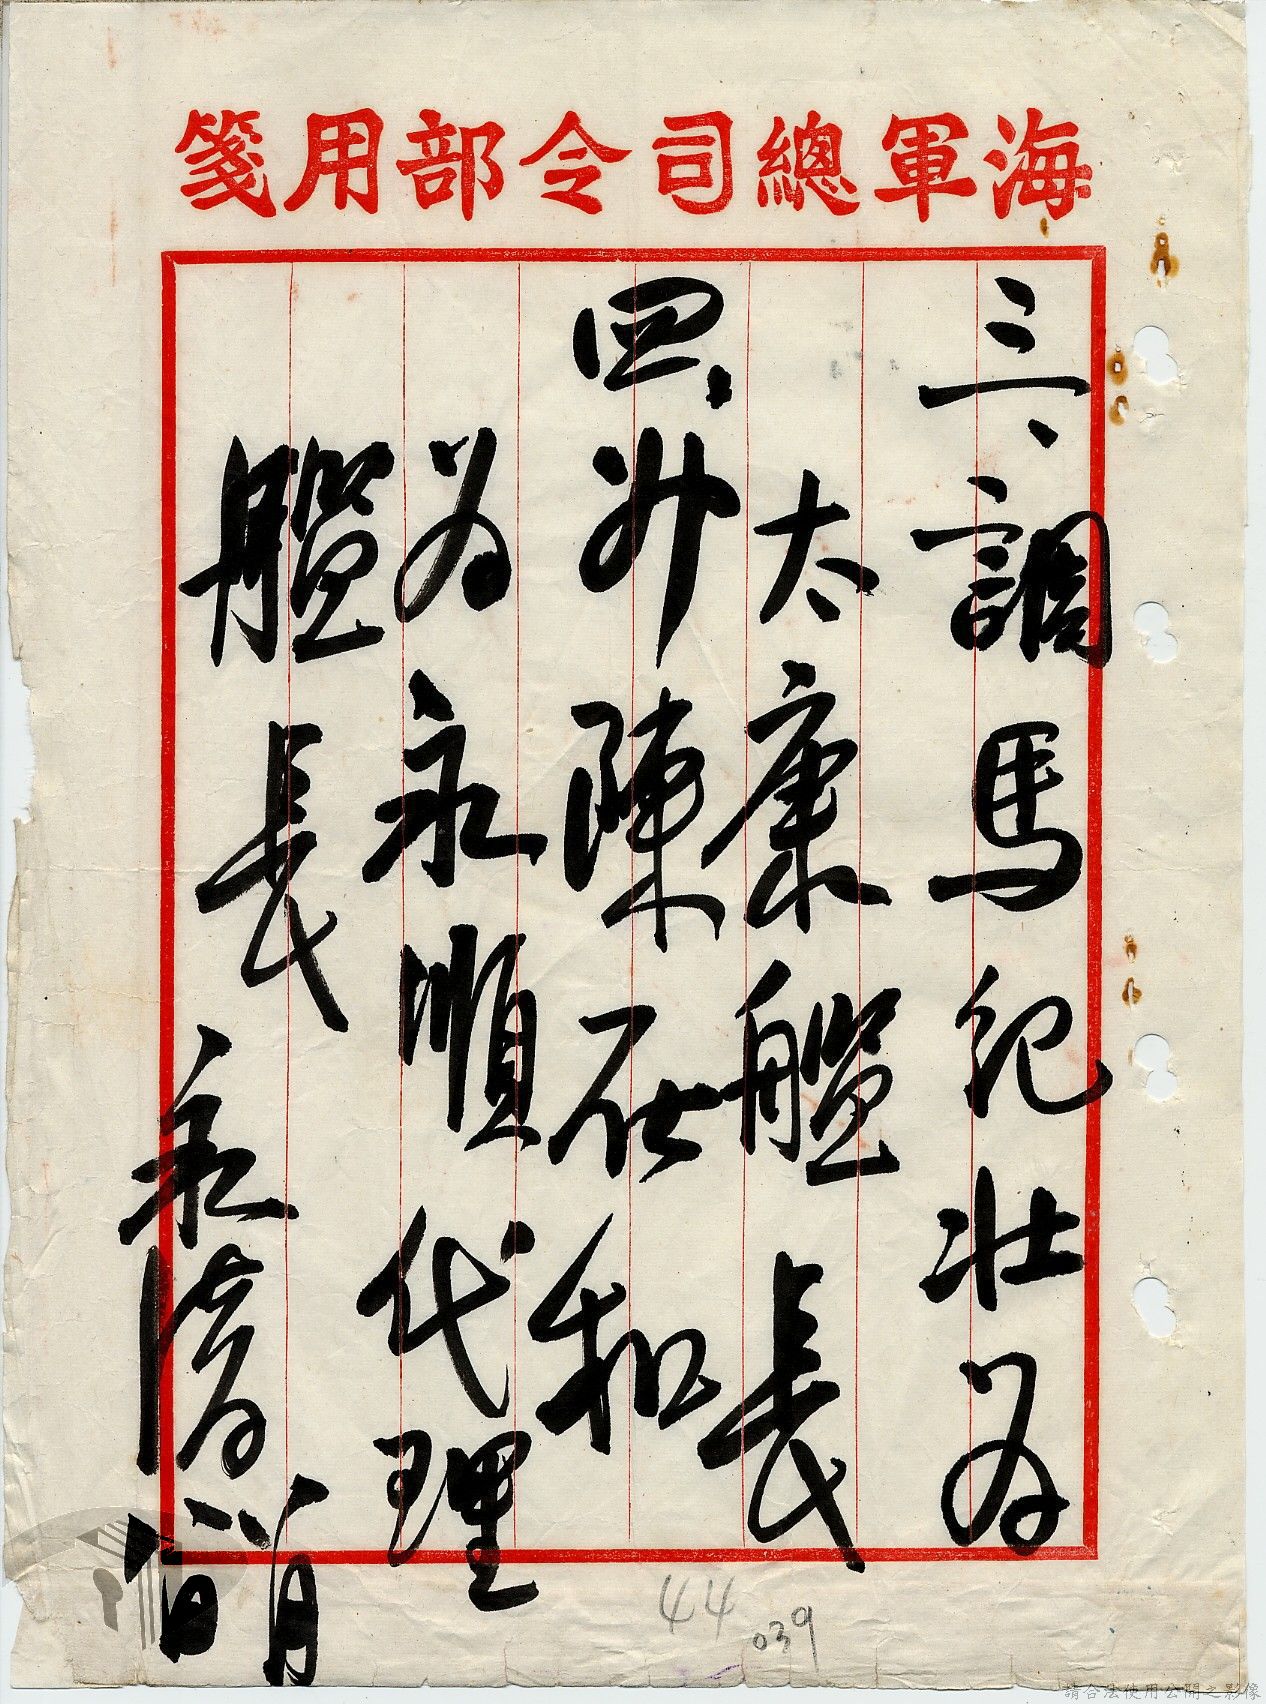 海軍總司令部用箋
三、調馬紀壯為
太康艦長
四、升陳在和
為永順代理
艦長
永清
44
039
請合法使用公開之影像